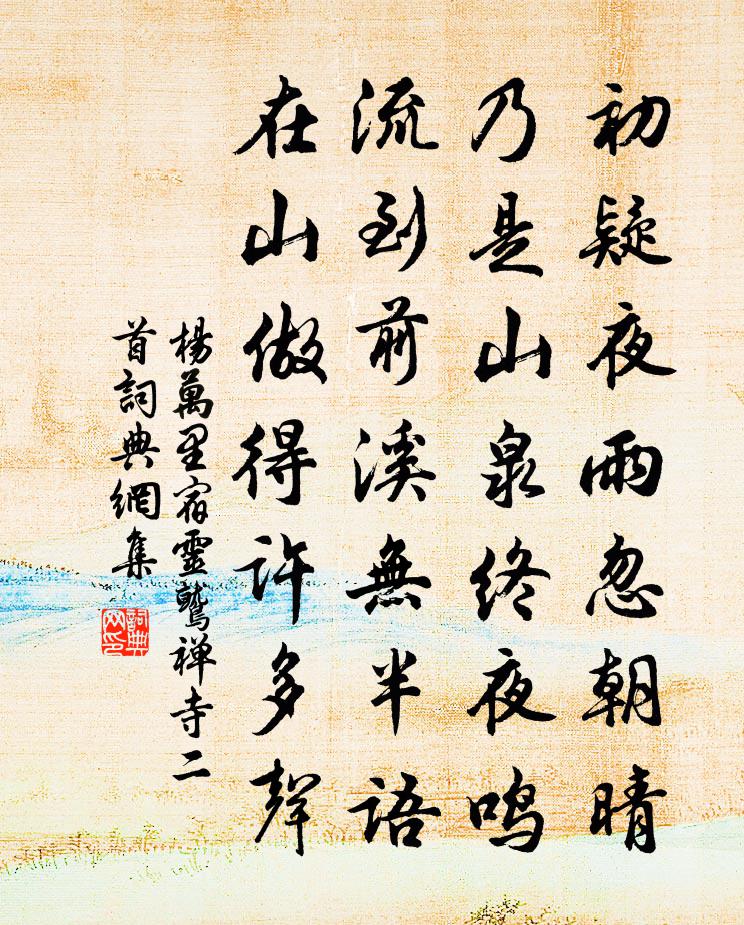 初疑夜雨忽朝晴
乃是山泉终夜鸣
流到前溪無半語
在山做得許多聲
楊萬里宿靈鷲禅寺二
首詞典網集
詞典
网印